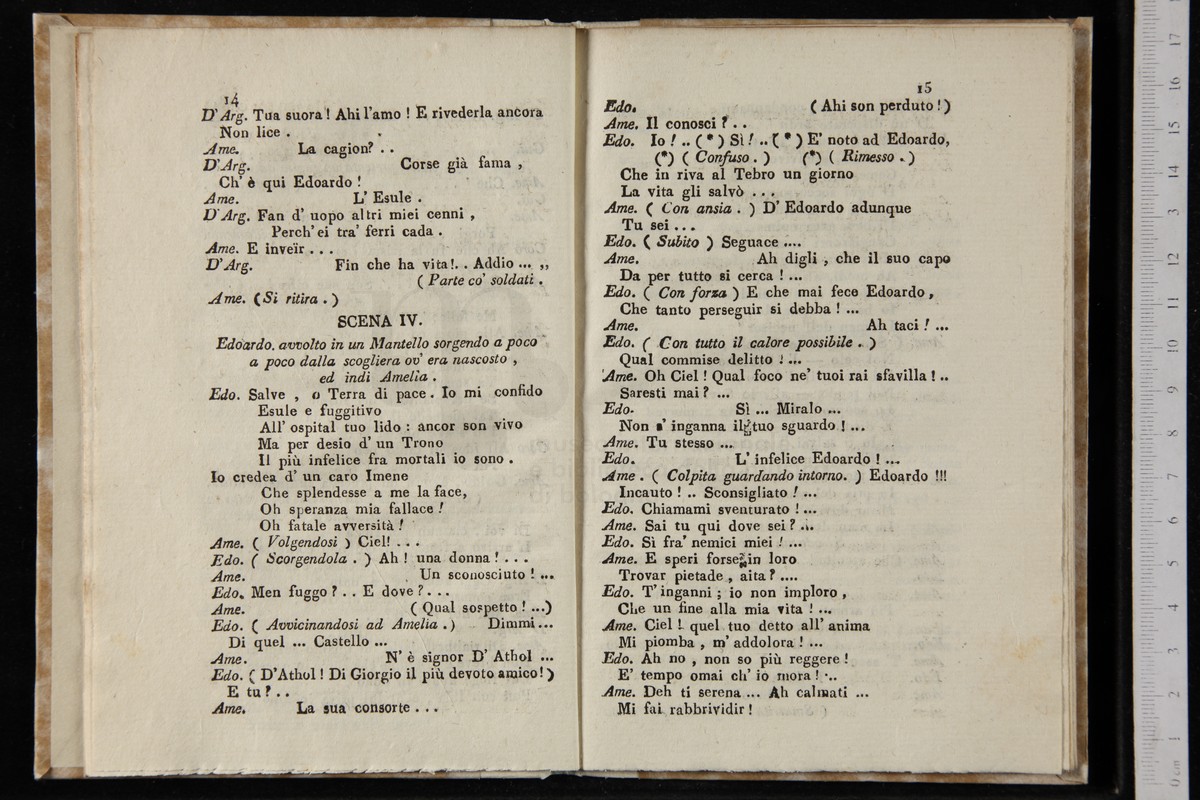 14
D' Arg. Tua suora ! Ahi l'amo ! E rivederla ancora
Non lice .
Ame. La cagion? . .
D'Arg. Corse già fama ,
Ch' è qui Edoardo !
Ame. L' Esule .
D'Arg. Fan d' uopo altri miei cenni ,
Perch' ei tra' ferri cada .
Ame. E inveir . . .
D'Arg. Fin che ha vita!. . Addio ... ,,
( Parte co' soldati .
Ame. (Si ritira . )
SCENA IV.
Edoardo. avvolto in un Mantello sorgendo a poco
a poco dalla scogliera ov' era nascosto ,
ed indi Amelia .
Edo. Salve , o Terra di pace . Io mi confido
Esule e fuggitivo
All' ospital tuo lido : ancor son vivo
Ma per desio d' un Trono
Il più infelice fra mortali io sono .
Io credea d' un caro Imene
Che splendesse a me la face,
Oh speranza mia fallace !
Oh fatale avversità !
Ame. ( Volgendosi ) Ciel! . . .
Edo. ( Scorgendola . ) Ah ! una donna ! . . .
Ame. Un sconosciuto ! ...
Edo. Men fuggo ? . . E dove ? . . .
Ame. ( Qual sospetto ! ...)
Edo. ( Avvicinandosi ad Amelia .) Dimmi...
Di quel ... Castello ...
Ame. N' è signor D' Athol ...
Edo. ( D'Athol ! Di Giorgio il più devoto amico! )
E tu ? . .
Ame. La sua consorte . . .
15
Edo. ( Ahi son perduto ! )
Ame. Il conosci ? . .
Edo. Io ! .. ( * ) Sì ! .. ( * ) E' noto ad Edoardo,
(*) ( Confuso . ) (*) ( Rimesso . )
Che in riva al Tebro un giorno
La vita gli salvò . . .
Ame. ( Con ansia . ) D' Edoardo adunque
Tu sei . . .
Edo. ( Subito ) Seguace ....
Ame. Ah digli , che il suo capo
Da per tutto si cerca ! ...
Edo. ( Con forza ) E che mai fece Edoardo ,
Che tanto perseguir si debba ! ...
Ame. Ah taci ! ...
Edo. ( Con tutto il calore possibile . )
Qual commise delitto ! ...
Ame. Oh Ciel ! Qual foco ne' tuoi rai sfavilla ! ..
Saresti mai ? ...
Edo. Sì ... Miralo ...
Non s' inganna il tuo sguardo ! ...
Ame. Tu stesso ...
Edo. L' infelice Edoardo ! ...
Ame . ( Colpita guardando intorno. ) Edoardo !!!
Incauto ! .. Sconsigliato ! ...
Edo. Chiamami sventurato ! ...
Ame. Sai tu qui dove sei ? ...
Edo. Sì fra' nemici miei ! ...
Ame. E speri forse in loro
Trovar pietade , aita ? ....
Edo. T' inganni ; io non imploro ,
Che un fine alla mia vita ! ...
Ame. Ciel ! quel tuo detto all' anima
Mi piomba , m' addolora ! ...
Edo. Ah no , non so più reggere !
E' tempo omai ch' io mora ! ...
Ame. Deh ti serena ... Ah calmati ...
Mi fai rabbrividir !
17
16
15
14
13
12
11
10
9
8
7
6
5
4
3
2
1
0 cm